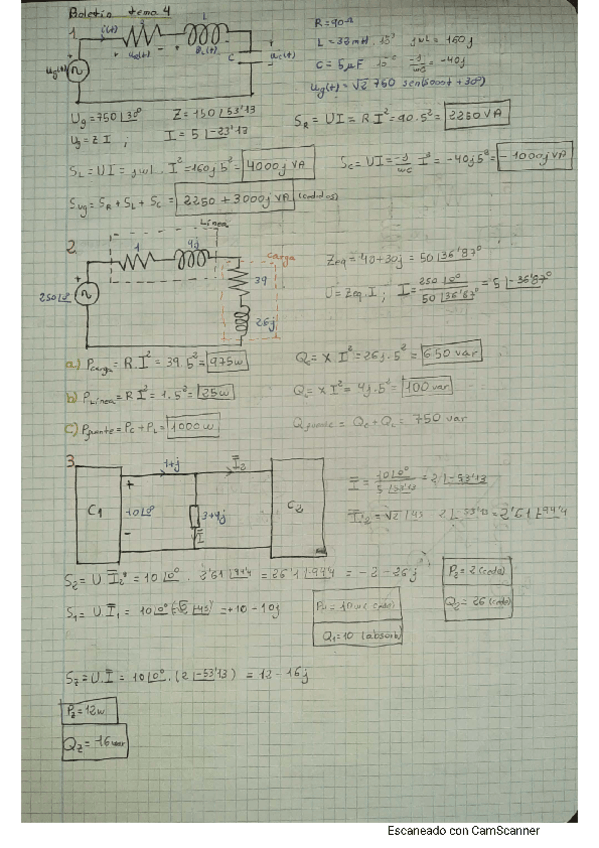 Boletín tema 4
1.
i(t)
L
R = 90Ω
L = 32mH · 10³ jωL = 160j
C = 5μF -j/ωC = -40j
ug(t) = √2 750 sen(5000t + 30º)
C
ug(t)
Ug = 750∠30º Z = 150∠53'13
Ug = Z I ; I = 5∠-23'13
S_R = UI = R I² = 90·5² = 2250 VA
S_L = UI = jωL · I² = 160j·5² = 4000j VA
S_C = UI = -j/ωC I² = -40j5² = -1000j VA
S_Ug = S_R + S_L + S_C = 2250 + 3000j VA (cedidos)
2
Línea
1
4j
Carga
39
26j
250∠0º
Zeq = 40+30j = 50∠36'87º
U = Zeq·I ; I = 250∠0º / 50∠36'87º = 5∠-36'87º
a) Pcarga = R·I² = 39·5² = 975w
Qc = X I² = 26j·5² = 650 var
b) PLínea = R I² = 1·5² = 25w
QL = X I² = 4j·5² = 100 var
c) Pfuente = Pc + PL = 1000w
Qfuente = Qc + QL = 750 var
3
1+j
I2
C1
+
10∠0º
-
3+4j
I
C2
I = 10∠0º / 5∠53'13 = 2∠-53'13
I2 = √2∠45 2∠-53'13 = 2'61∠94'4
S2 = U I2* = 10∠0º · 2'61∠94'4 = 26'1∠94'4 = -2-26j
P2 = 2 (cede)
Q2 = 26 (cede)
S1 = U I1 = 10∠0º (√2∠45) = +10-10j
Q1 = 10 (absorb)
Sz = U·I = 10∠0º · (2∠-53'13) = 12-16j
Pz = 12w
Qz = 16var
Escaneado con CamScanner